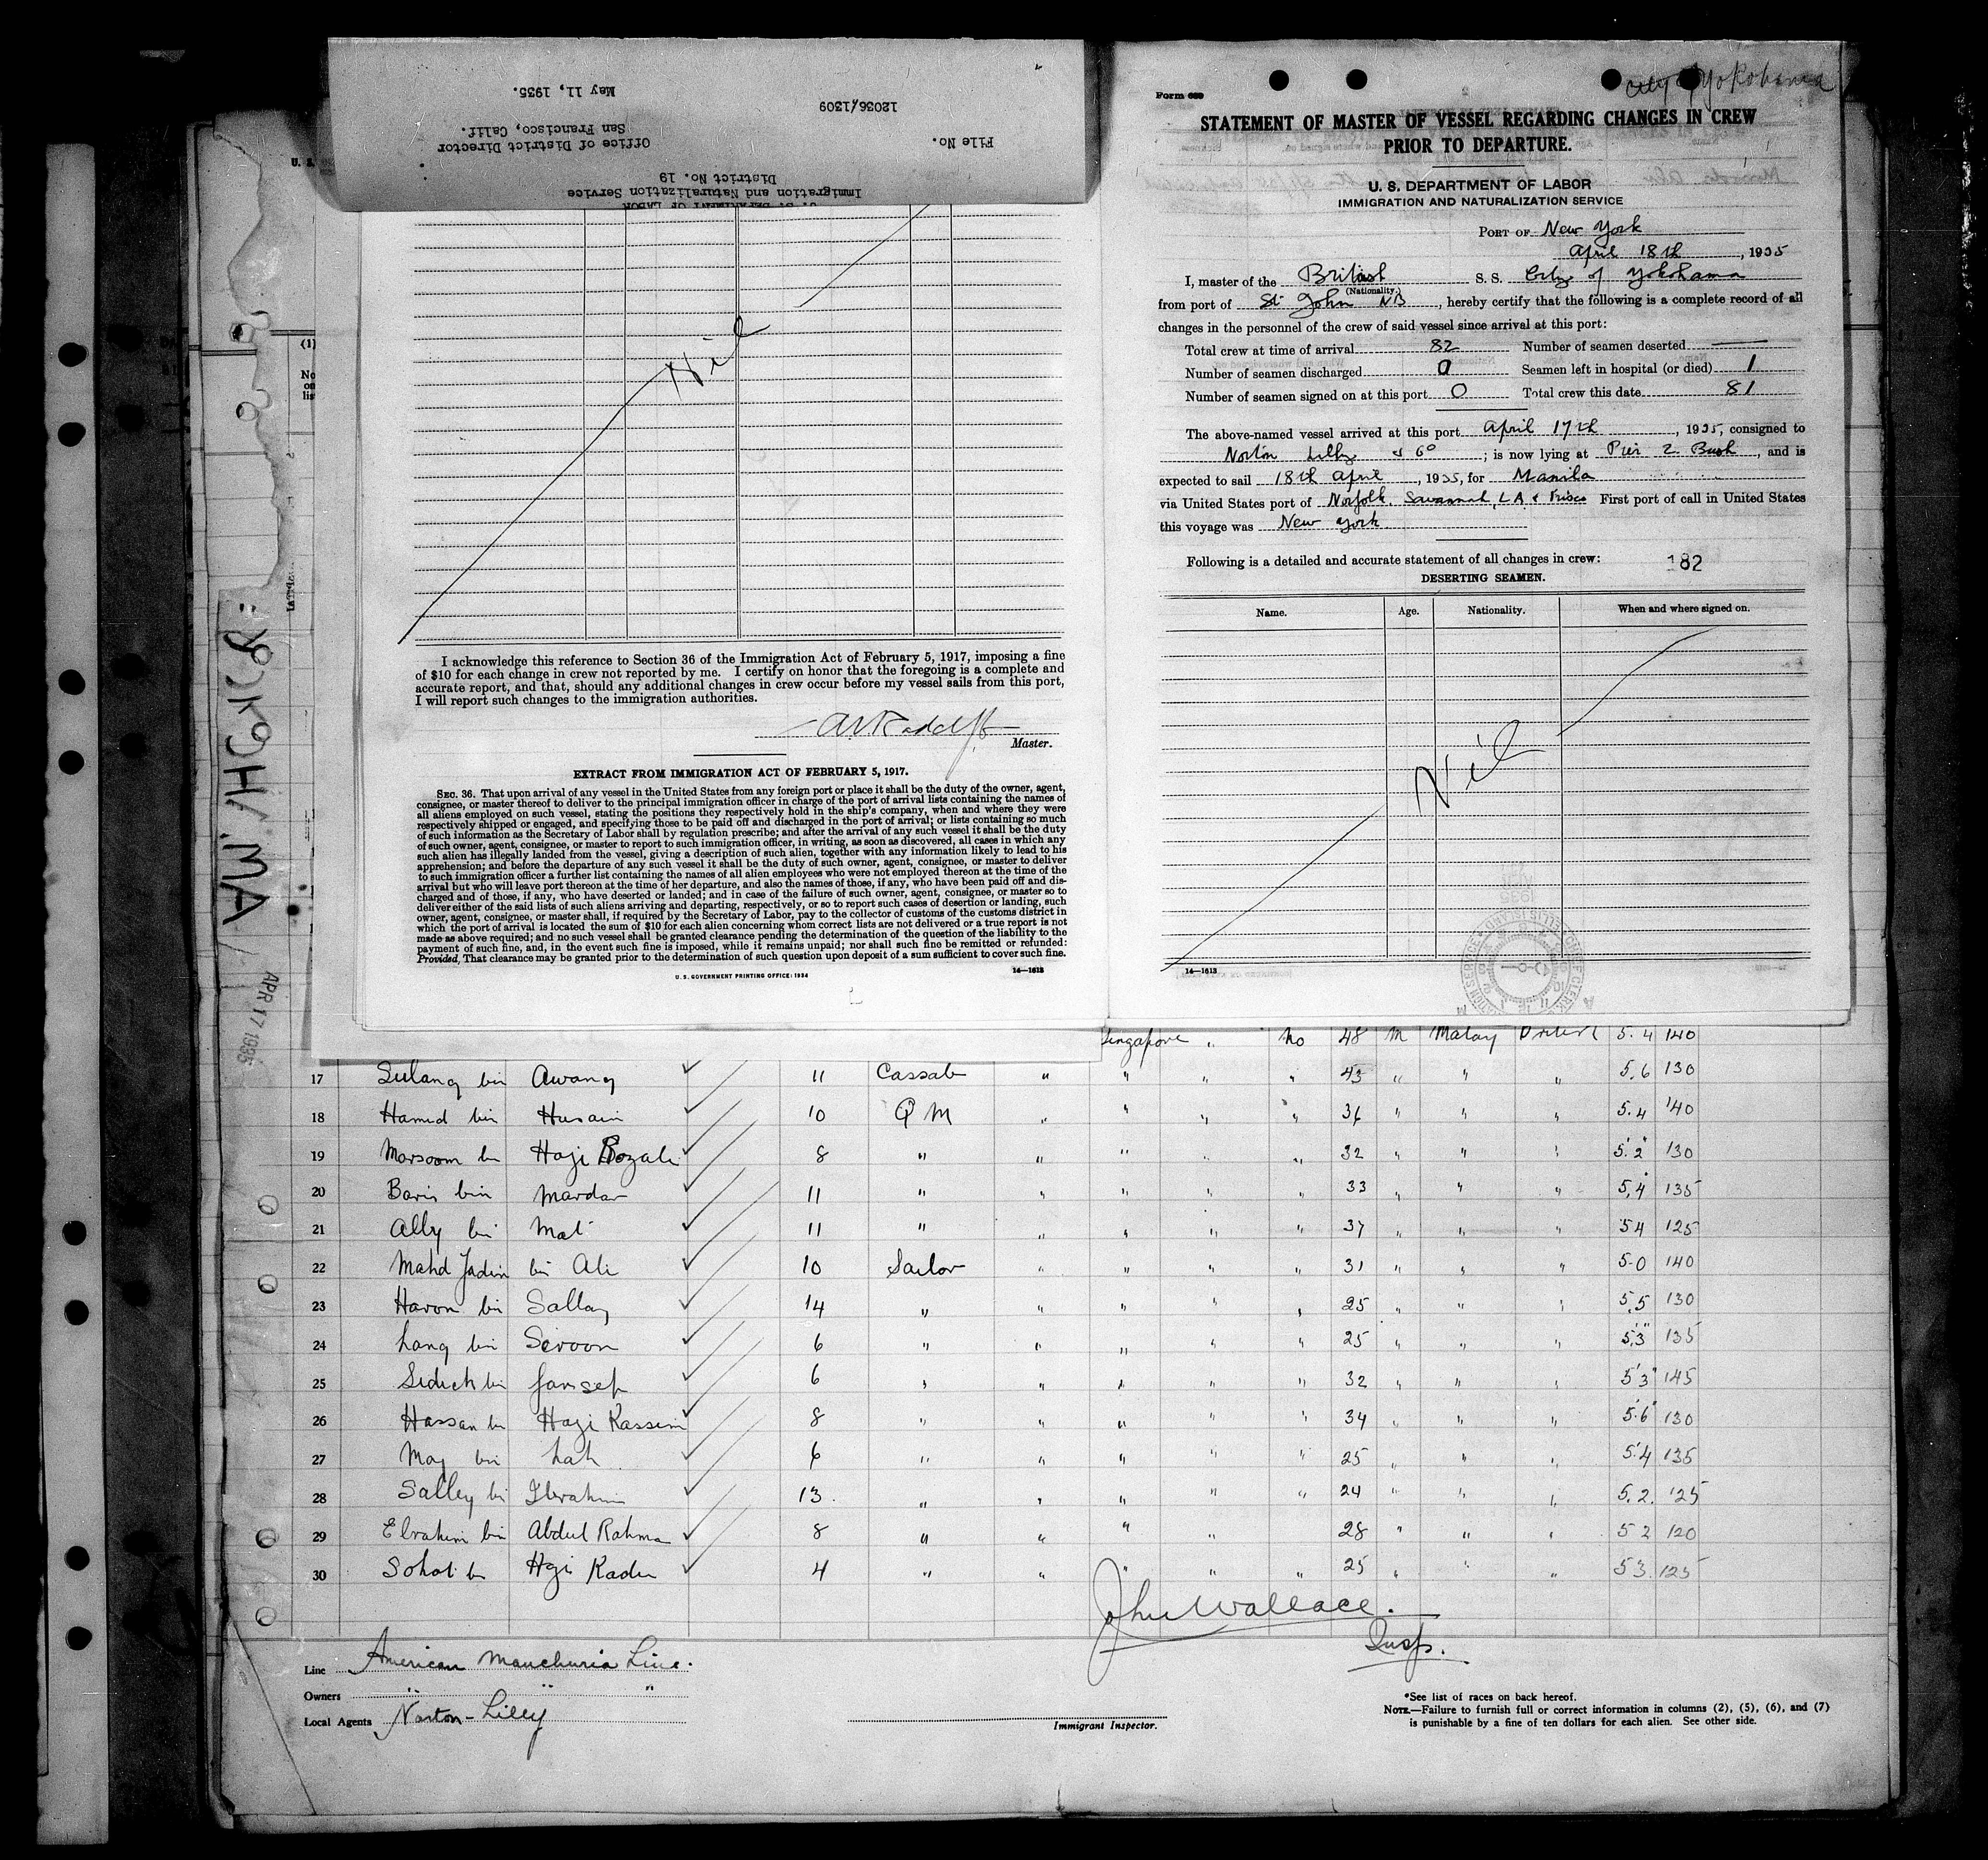 U. S. DEPARTMENT OF LABOR
Immigration and Naturalization Service
District No. 19
File No.
12036/1309
Office of District Director
San Francisco, Calif.
May 11, 1935.
Nil
I acknowledge this reference to Section 36 of the Immigration Act of February 5, 1917, imposing a fine
of $10 for each change in crew not reported by me. I certify on honor that the foregoing is a complete and
accurate report, and that, should any additional changes in crew occur before my vessel sails from this port,
I will report such changes to the immigration authorities.
Master.
EXTRACT FROM IMMIGRATION ACT OF FEBRUARY 5, 1917.
SEC. 36. That upon arrival of any vessel in the United States from any foreign port or place it shall be the duty of the owner, agent,
consignee, or master thereof to deliver to the principal immigration officer in charge of the port of arrival lists containing the names of
all aliens employed on such vessel, stating the positions they respectively hold in the ship's company, when and where they were
respectively shipped or engaged, and specifying those to be paid off and discharged in the port of arrival; or lists containing so much
of such information as the Secretary of Labor shall by regulation prescribe; and after the arrival of any such vessel it shall be the duty
of such owner, agent, consignee, or master to report to such immigration officer, in writing, as soon as discovered, all cases in which any
such alien has illegally landed from the vessel, giving a description of such alien, together with any information likely to lead to his
apprehension; and before the departure of any such vessel it shall be the duty of such owner, agent, consignee, or master to deliver
to such immigration officer a further list containing the names of all alien employees who were not employed thereon at the time of the
arrival but who will leave port thereon at the time of her departure, and also the names of those, if any, who have been paid off and dis-
charged and of those, if any, who have deserted or landed; and in case of the failure of such owner, agent, consignee, or master so to
deliver either of the said lists of such aliens arriving and departing, respectively, or so to report such cases of desertion or landing, such
owner, agent, consignee, or master shall, if required by the Secretary of Labor, pay to the collector of customs of the customs district in
which the port of arrival is located the sum of $10 for each alien concerning whom correct lists are not delivered or a true report is not
made as above required; and no such vessel shall be granted clearance pending the determination of the question of the liability to the
payment of such fine, and, in the event such fine is imposed, while it remains unpaid; nor shall such fine be remitted or refunded:
Provided, That clearance may be granted prior to the determination of such question upon deposit of a sum sufficient to cover such fine.
U. S. GOVERNMENT PRINTING OFFICE: 1934 14—1613
City of Yokohama
Form 689
STATEMENT OF MASTER OF VESSEL REGARDING CHANGES IN CREW
PRIOR TO DEPARTURE.
U. S. DEPARTMENT OF LABOR
IMMIGRATION AND NATURALIZATION SERVICE
PORT OF New York
April 18th, 1935
I, master of the British S. S. City of Yokohama
(Nationality.)
from port of St John NB, hereby certify that the following is a complete record of all
changes in the personnel of the crew of said vessel since arrival at this port:
Total crew at time of arrival 82 Number of seamen deserted —
Number of seamen discharged 0 Seamen left in hospital (or died) 1
Number of seamen signed on at this port 0 Total crew this date 81
The above-named vessel arrived at this port April 17th, 1935, consigned to
Norton Lilly & Co; is now lying at Pier 2 Bush, and is
expected to sail 18th April, 1935, for Manila
via United States port of Norfolk, Savannah, LA & Frisco First port of call in United States
this voyage was New York
Following is a detailed and accurate statement of all changes in crew: 182
DESERTING SEAMEN.
Name. Age. Nationality. When and where signed on.
Nil
14—1613
APR 17 1935
Singapore " No 48 M Malay British 5.4 140
17 Sulang bin Awang 11 Cassab " " " " 43 " " " 5.6 130
18 Hamid bin Husain 10 QM " " " " 36 " " " 5.4 140
19 Morsoom bn Haji Rozali 8 " " " " " 32 " " " 5.2 130
20 Baris bin Mardan 11 " " " " " 33 " " " 5.4 135
21 Ally bin Mat 11 " " " " " 37 " " " 5 4 125
22 Mahd Jadin bin Ali 10 Sailor " " " " 31 " " " 5-0 140
23 Haron bin Sallay 14 " " " " " 25 " " " 5.5 130
24 Lang bin Seroon 6 " " " " " 25 " " " 5'3" 135
25 Sidick bin Jansep 6 " " " " " 32 " " " 5'3" 145
26 Hassan bn Hazi Kassim 8 " " " " " 34 " " " 5'6" 130
27 Maj bin Lah 6 " " " " " 25 " " " 5'4 135
28 Salley bi Ibrahim 13. " " " " " 24 " " " 5.2. 125
29 Ebrahim bin Abdul Rahma 8 " " " " 28 " " " 5 2 120
30 Sohot b Hgi Kader 4 " " " " " 25 " " " 5 3. 125
John Wallace.
Insp.
Line American Manchuria Line.
Owners " " "
Local Agents Norton-Lilly
Immigrant Inspector.
*See list of races on back hereof.
NOTE.—Failure to furnish full or correct information in columns (2), (5), (6), and (7)
is punishable by a fine of ten dollars for each alien. See other side.